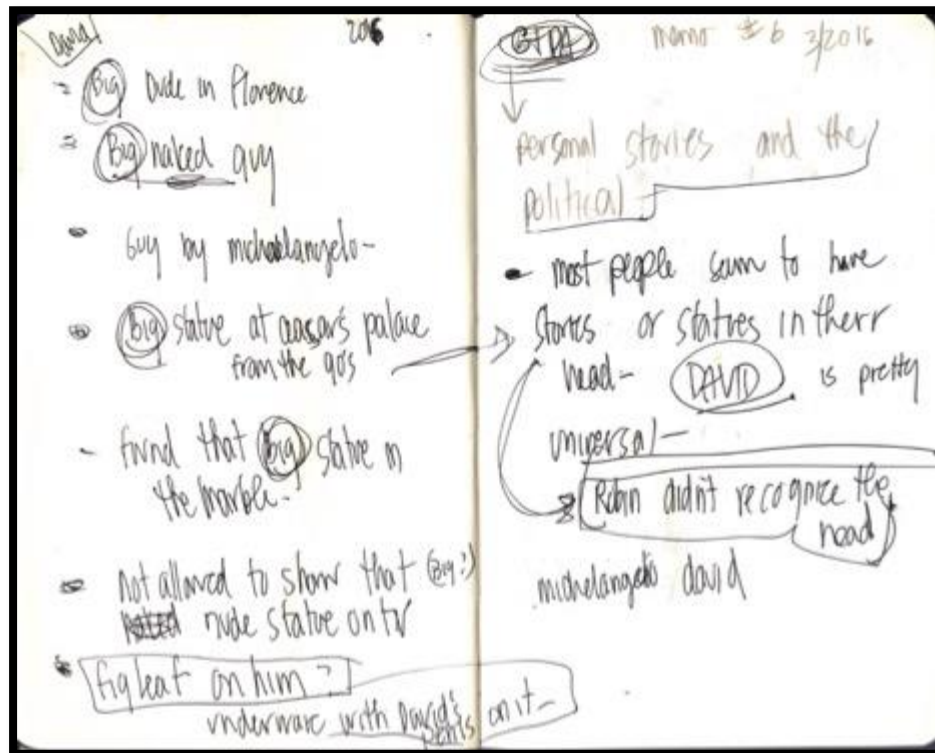 2016
Big Dude in Florence
Big naked guy
Guy by michaelangelo-
Big statue at caesar's palace
from the 90's
found that Big statue in
the marble-
not allowed to show that (Big?)
nude statue on tv
fig leaf on him?
underware with David's
penis on it-
GTDA memo #6 3/2016
personal stories and the
political-
most people seem to have
stories or statues in therr
head- DAVID is pretty
universal-
Robin didn't recognize the
head
michelangelo david